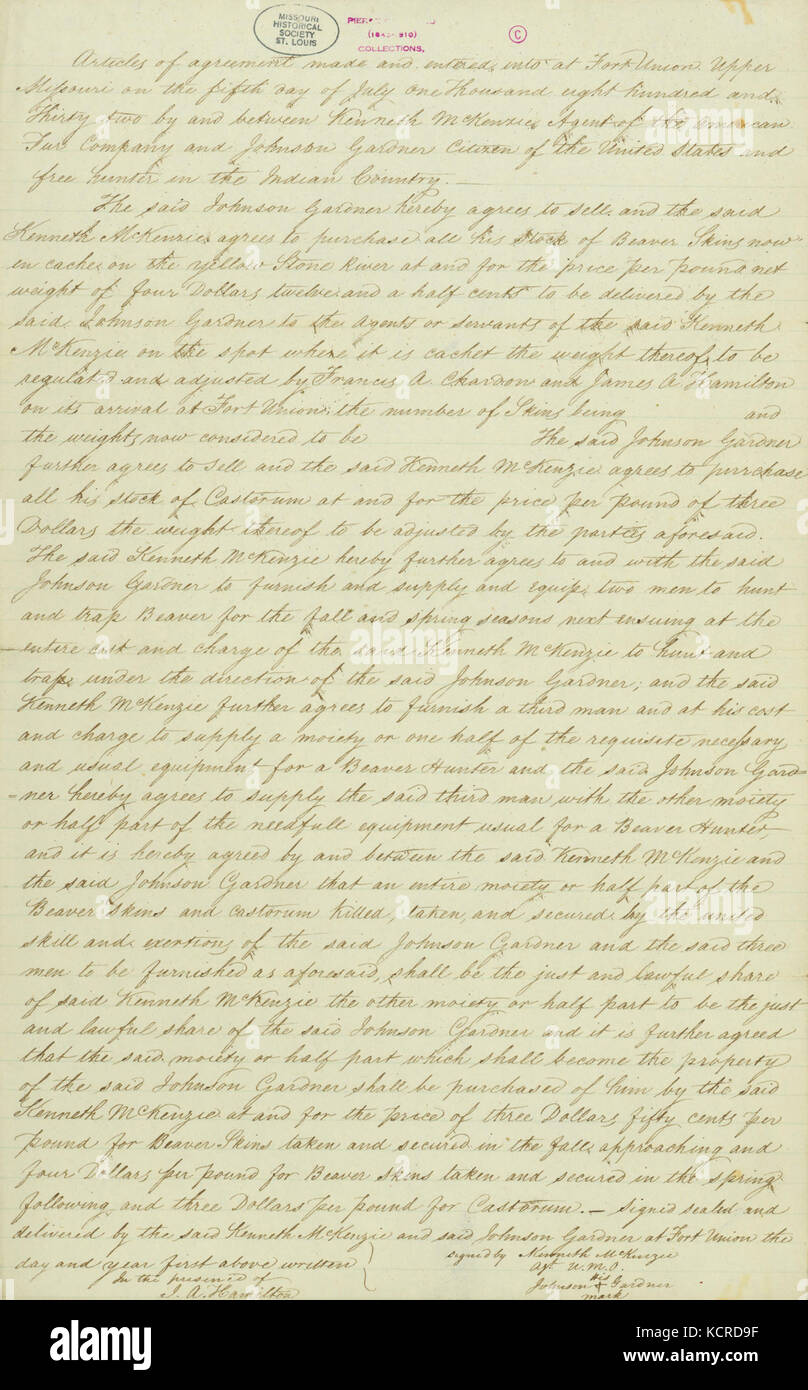 MISSOURI
HISTORICAL
SOCIETY
ST. LOUIS
COLLECTIONS.
C
Articles of agreement made and entered into at Fort Union Upper
Missouri on the fifth day of July one Thousand eight hundred and
Thirty two by and between Kenneth McKenzie Agent of the American
Fur Company and Johnson Gardner Citizen of the United States and
free hunter in the Indian Country. —
The said Johnson Gardner hereby agrees to sell and the said
Kenneth McKenzie agrees to purchase all his Stock of Beaver Skins now
en cache on the Yellow Stone River at and for the price per pound net
weight of four Dollars twelve and a half cents to be delivered by the
said Johnson Gardner to the Agents or servants of the said Kenneth
McKenzie on the spot where it is cachet the weight thereof to be
regulated and adjusted by Francis A Chardon and James A Hamilton
on its arrival at Fort Union the number of Skins being and
the weight now considered to be The said Johnson Gardner
further agrees to sell and the said Kenneth McKenzie agrees to purrchase
all his stock of Castorum at and for the price per pound of three
Dollars the weight thereof to be adjusted by the parties aforesaid.
The said Kenneth McKenzie hereby further agrees to and with the said
Johnson Gardner to furnish and supply and Equip two men to hunt
and trap Beaver for the fall and spring seasons next ensuing at the
entire cost and charge of the said Kenneth McKenzie to hunt and
trap under the direction of the said Johnson Gardner; and the said
Kenneth McKenzie further agrees to furnish a third man and at his cost
and charge to supply a moiety or one half of the requisite necessary
and usual equipment for a Beaver Hunter and the said Johnson Gard=
=ner hereby agrees to supply the said third man with the other moiety
or half part of the needfull equipment usual for a Beaver Hunter,
and it is hereby agreed by and between the said Kenneth McKenzie and
the said Johnson Gardner that an entire moiety or half part of the
Beaver Skins and castorum killed, taken, and secured by the united
skill and exertions of the said Johnson Gardner and the said three
men to be furnished as aforesaid, shall be the just and lawful share
of said Kenneth McKenzie the other moiety or half part to be the just
and lawful share of the said Johnson Gardner and it is further agreed
that the said moiety or half part which shall become the property
of the said Johnson Gardner shall be purchased of him by the said
Kenneth McKenzie at and for the price of three Dollars fifty cents per
pound for Beaver Skins taken and secured in the fall approaching and
four Dollars per pound for Beaver skins taken and secured in the spring
following and three Dollars per pound for Castorum. — Signed sealed and
delivered by the said Kenneth McKenzie and said Johnson Gardner at Fort Union the
day and year first above written signed by Kenneth McKenzie
In the presence of Agt U. M. O.
J. A. Hamilton Johnson his Gardner
mark
alamy
alamy stock photo
KCRD9F
www.alamy.com